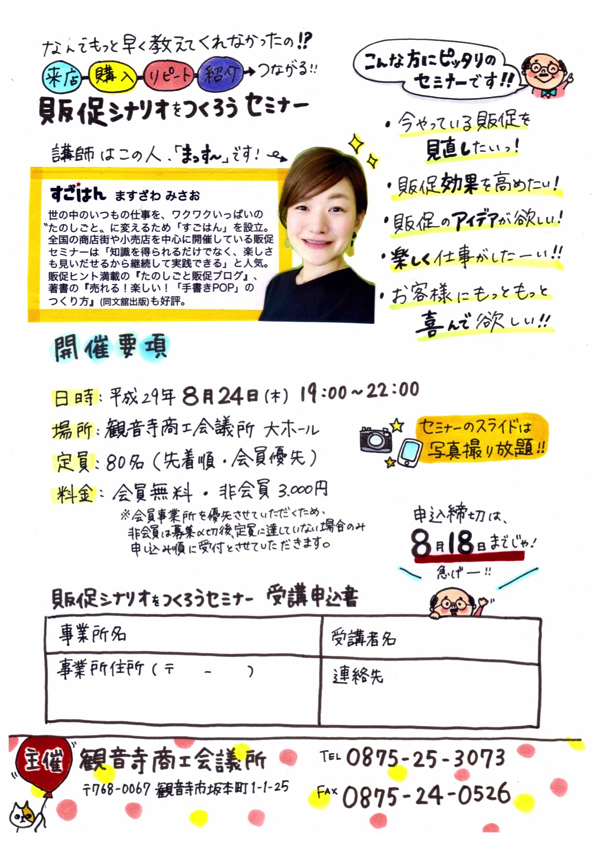 なんでもっと早く教えてくれなかったの!?
来店 購入 リピート 紹介→つながる!!
販促シナリオをつくろうセミナー
こんな方にピッタリの
セミナーです!!
講師はこの人、「まっすー」です!
すごはん ますざわ みさお
世の中のいつもの仕事を、ワクワクいっぱいの
“たのしごと〟に変えるため「すごはん」を設立。
全国の商店街や小売店を中心に開催している販促
セミナーは「知識を得られるだけでなく、楽しさ
も見いだせるから継続して実践できる」と人気。
販促ヒント満載の『たのしごと販促ブログ』、
著書の『売れる!楽しい!「手書きPOP」の
つくり方』(同文舘出版)も好評。
・今やっている販促を
見直したいっ!
・販促効果を高めたい!
・販促のアイデアが欲しい!
・楽しく仕事がしたーい!!
・お客様にもっともっと
喜んで欲しい!!
開催要項
日時:平成29年8月24日(木) 19:00~22:00
場所:観音寺商工会議所 大ホール
定員:80名(先着順・会員優先)
料金:会員無料・非会員3.000円
※会員事業所を優先させていただくため、
非会員は募集〆切後、定員に達していない場合のみ
申し込み順に受付とさせていただきます。
セミナーのスライドは
写真撮り放題!!
申込締切は、
8月18日までじゃ!
急げー!!
販促シナリオをつくろうセミナー 受講申込書
事業所名
受講者名
事業所住所(〒 - )
連絡先
主催 観音寺商工会議所
〒768-0067 観音寺市坂本町1-1-25
TEL 0875-25-3073
FAX 0875-24-0526